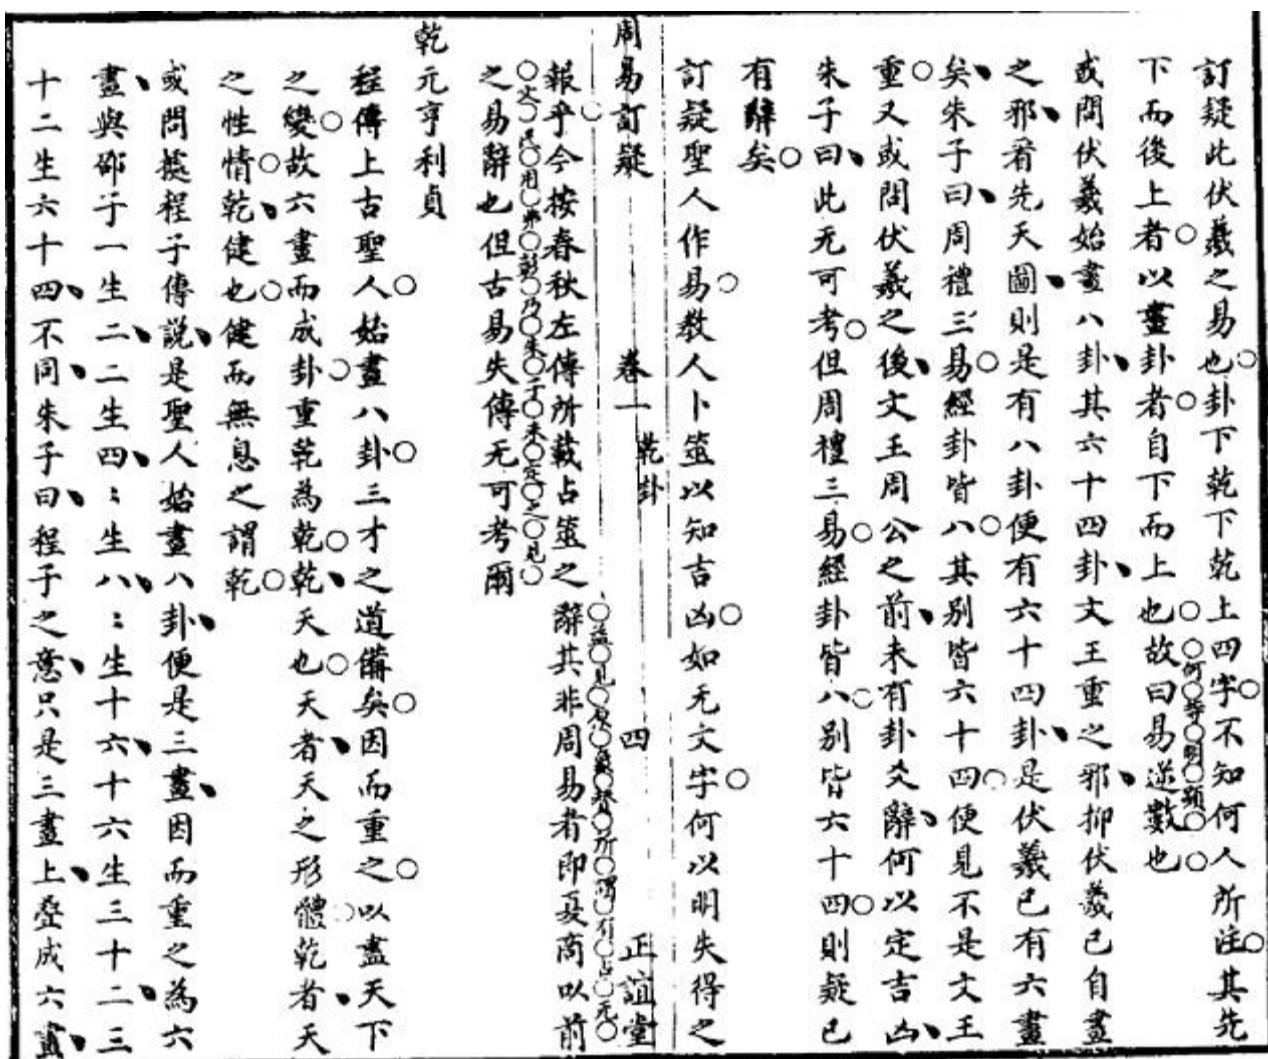 訂疑此伏羲之易也卦下乾下乾上四字不知何人所注其先
下而後上者以畫卦者自下而上也故曰易逆數也
何等明顯
或問伏羲始畫八卦其六十四卦文王重之邪抑伏羲已自畫
之邪看先天圖則是有八卦便有六十四卦是伏羲已有六畫
矣朱子曰周禮三易經卦皆八其别皆六十四便見不是文王
重又或問伏羲之後文王周公之前未有卦爻辭何以定吉凶
朱子曰此无可考但周禮三易經卦皆八别皆六十四則疑已
有辭矣
訂疑聖人作易教人卜筮以知吉凶如无文字何以明失得之
周易訂疑 卷一 乾卦 四 正誼堂
益見原象贊所謂有占无
報乎今按春秋左傳所載占筮之辭其非周易者即夏商以前
文民用弗彰乃朱子未定之見
之易辭也但古易失傳无可考爾
乾元亨利貞
程傳上古聖人始畫八卦三才之道備矣因而重之以盡天下
之變故六畫而成卦重乾為乾乾天也天者天之形體乾者天
之性情乾健也健而無息之謂乾
或問據程子傳說是聖人始畫八卦便是三畫因而重之為六
畫與邵子一生二二生四：生八：生十六十六生三十二三
十二生六十四不同朱子曰程子之意只是三畫上疊成六畫